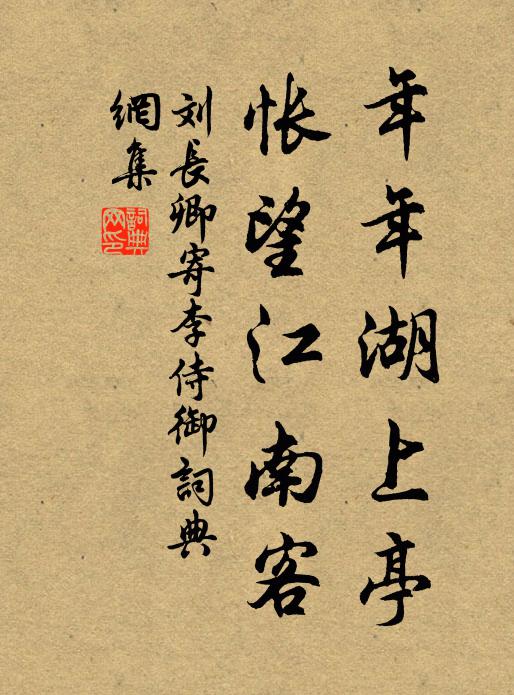 年年湖上亭
悵望江南客
刘長卿寄李侍御詞典
網集
詞典網印